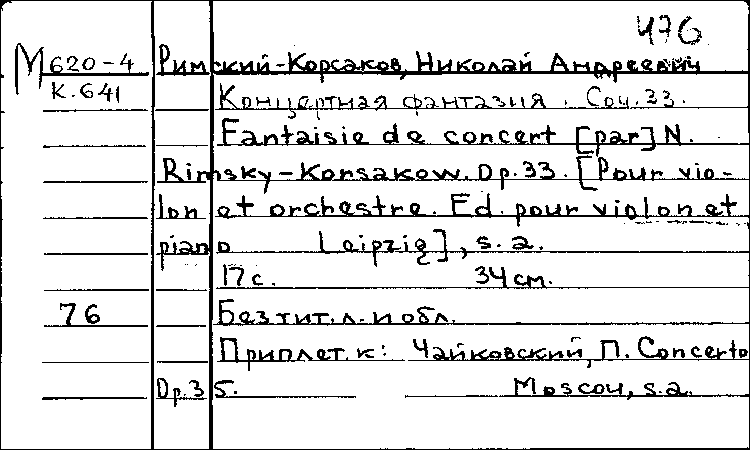 476
М 620-4 Римский-Корсаков, Николай Андреевич
К.641 Концертная фантазия. Соч.33.
Fantaisie de concert [par] N.
Rimsky-Korsakow. Op.33. [Pour vio-
lon et orchestre. Ed. pour violon et
piano Leipzig], s.a.
17 с. 34 см.
76 Без тит. л. и обл.
Приплет. к: Чайковский, П. Concerto
Op.35. Moscou, s.a.